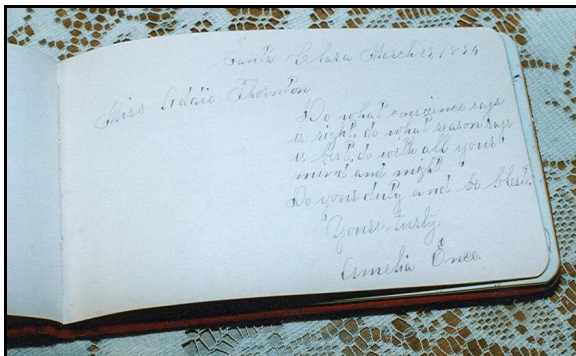 Santa Clara March 23, 1884
Miss Addie Thornton
Do what conscience says
is right, do what reason says
is best, do with all your
mind and might
Do your duty and be blest.
Yours truly,
Amelia